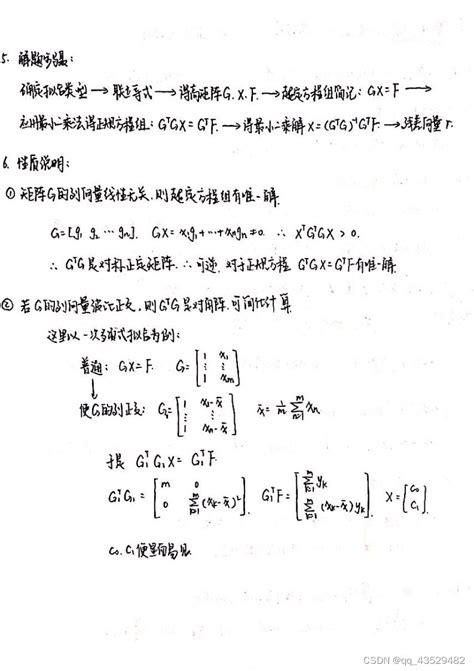 5. 解题步骤：
确定拟合类型 → 联立等式 → 得高矩阵G.X.F. → 超定方程组简记：GX=F →
应用最小二乘法得正规方程组：GᵀGX=GᵀF. → 得最小二乘解 X=(GᵀG)⁻¹GᵀF. → 残差向量 r.
6. 性质说明：
① 矩阵G的列向量线性无关，则超定方程组有唯一解.
G=[g₁ g₂ ⋯ gₙ]. GX=x₁g₁+⋯+xₙgₙ≠0. ∴ XᵀGᵀGX>0.
∴ GᵀG是对称正定矩阵. ∴可逆. 对于正规方程 GᵀGX=GᵀF有唯一解.
② 若G的列向量彼此正交，则GᵀG是对角阵. 可简化计算.
这里以一次多项式拟合为例：
普通：GX=F. G=[1 x₁; ⋮ ⋮; 1 xₘ]
使G的列正交：G₁=[1 x₁-x̄; ⋮ ⋮; 1 xₙ-x̄] x̄=1/m ∑ₙ₌₁ᵐ xₙ
于是 G₁ᵀG₁X=G₁ᵀF.
G₁ᵀG₁=[m 0; 0 ∑ₖ₌₁ᵐ(xₖ-x̄)²]. G₁ᵀF=[∑ₖ₌₁ᵐ yₖ; ∑ₖ₌₁ᵐ(xₖ-x̄)yₖ]. X=[c₀; c₁]
c₀.c₁便显而易见
CSDN @qq_43529482